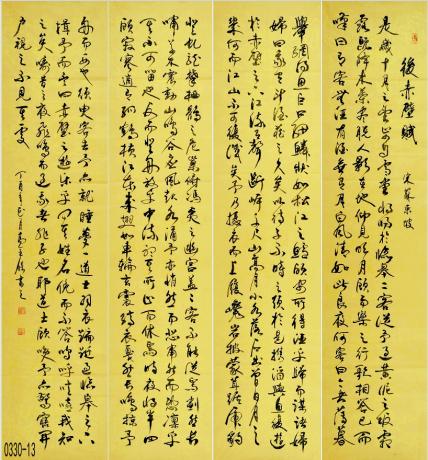 後赤壁賦 宋蘇東坡
是歲十月之望步自雪堂將歸於臨皋二客從予過黃泥之坂霜
露既降木葉盡脫人影在地仰見明月顧而樂之行歌相答已而
嘆曰有客無酒有酒無肴月白風清如此良夜何客曰今者薄暮
舉網得魚巨口細鱗狀如松江之鱸顧安所得酒乎歸而謀諸婦
婦曰我有斗酒藏之久矣以待子不時之須於是攜酒與魚復遊
於赤壁之下江流有聲斷岸千尺山高月小水落石出曾日月之
幾何而江山不可復識矣予乃攝衣而上履巉岩披蒙茸踞虎豹
登虬龍攀棲鶻之危巢俯馮夷之幽宮蓋二客不能從焉劃然長
嘯草木震動山鳴谷應風起水湧予亦悄然而悲肅然而恐凜乎
其不可留也反而登舟放乎中流聽其所止而休焉時夜將半四
顧寂寥適有孤鶴橫江東來翅如車輪玄裳縞衣戛然長鳴掠予
舟而西也須臾客去予亦就睡夢一道士羽衣蹁躚過臨皋之下
揖予而言曰赤壁之遊樂乎問其姓名俛而不答嗚呼噫嘻我知
之矣疇昔之夜飛鳴而過我者非子也耶道士顧笑予亦驚寤開
戶視之不見其處
0330-13